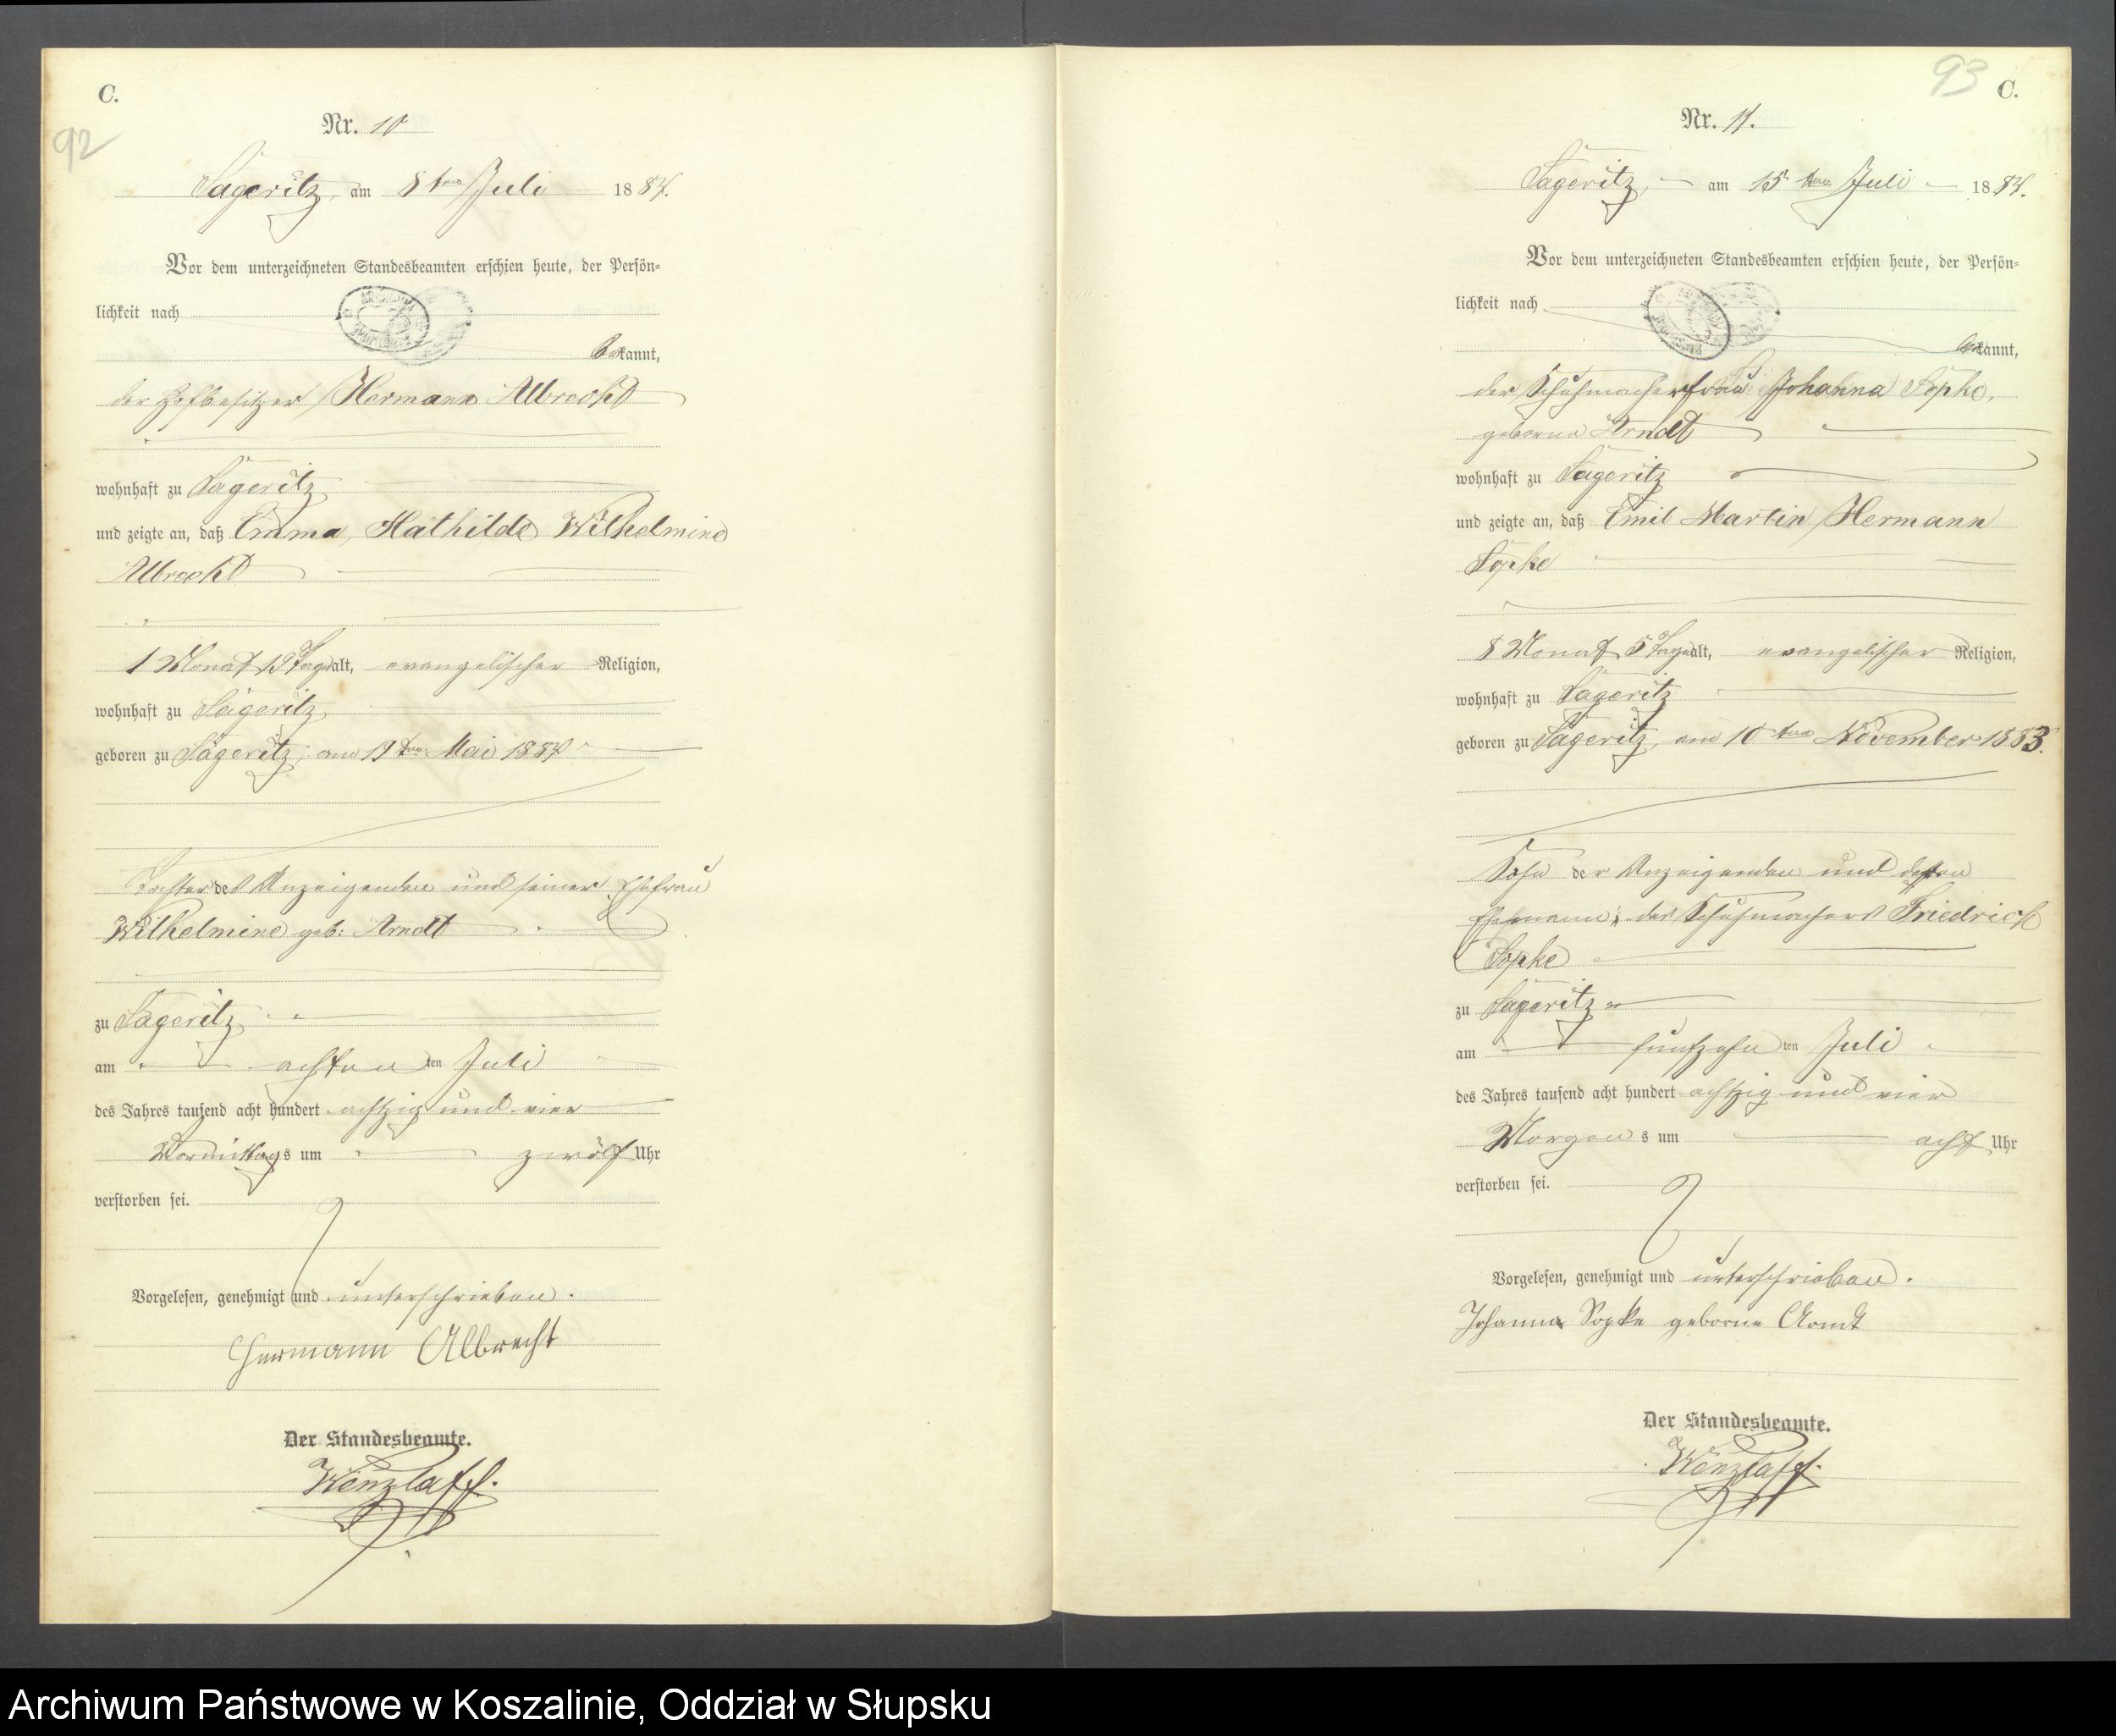 C.
92
Nr. 10
Sageritz, am 8ten Juli 1884.
Vor dem unterzeichneten Standesbeamten erschien heute, der Persön-
lichkeit nach
bekannt,
der Hofbesitzer Hermann Albrecht
wohnhaft zu Sageritz
und zeigte an, daß Emma, Mathilde Wilhelmine
Albrecht
1 Monat 19 Tage alt, evangelischer Religion,
wohnhaft zu Sageritz
geboren zu Sageritz, am 19ten Mai 1884
Tochter des Anzeigenden und seiner Ehefrau
Wilhelmine geb: Arndt
zu Sageritz
am achten ten Juli
des Jahres tausend acht hundert achtzig und vier
Vormittags um zwölf Uhr
verstorben sei.
Vorgelesen, genehmigt und unterschrieben.
Hermann Albrecht
Der Standesbeamte.
Wenzlaff.
93 C.
Nr. 11.
Sageritz, am 15ten Juli 1884.
Vor dem unterzeichneten Standesbeamten erschien heute, der Persön-
lichkeit nach
bekannt,
der Schuhmacherfrau Johanna Sopke,
geborne Arndt
wohnhaft zu Sageritz
und zeigte an, daß Emil Martin Hermann
Sopke
8 Monat 5 Tage alt, evangelischer Religion,
wohnhaft zu Sageritz
geboren zu Sageritz, am 10ten November 1883.
Sohn der Anzeigenden und dessen
Ehemann, des Schuhmachers Friedrich
Sopke
zu Sageritz
am fünfzehn ten Juli
des Jahres tausend acht hundert achtzig und vier
Morgens um acht Uhr
verstorben sei.
Vorgelesen, genehmigt und unterschrieben.
Johanna Sopke geborne Arndt
Der Standesbeamte.
Wenzlaff.
Archiwum Państwowe w Koszalinie, Oddział w Słupsku